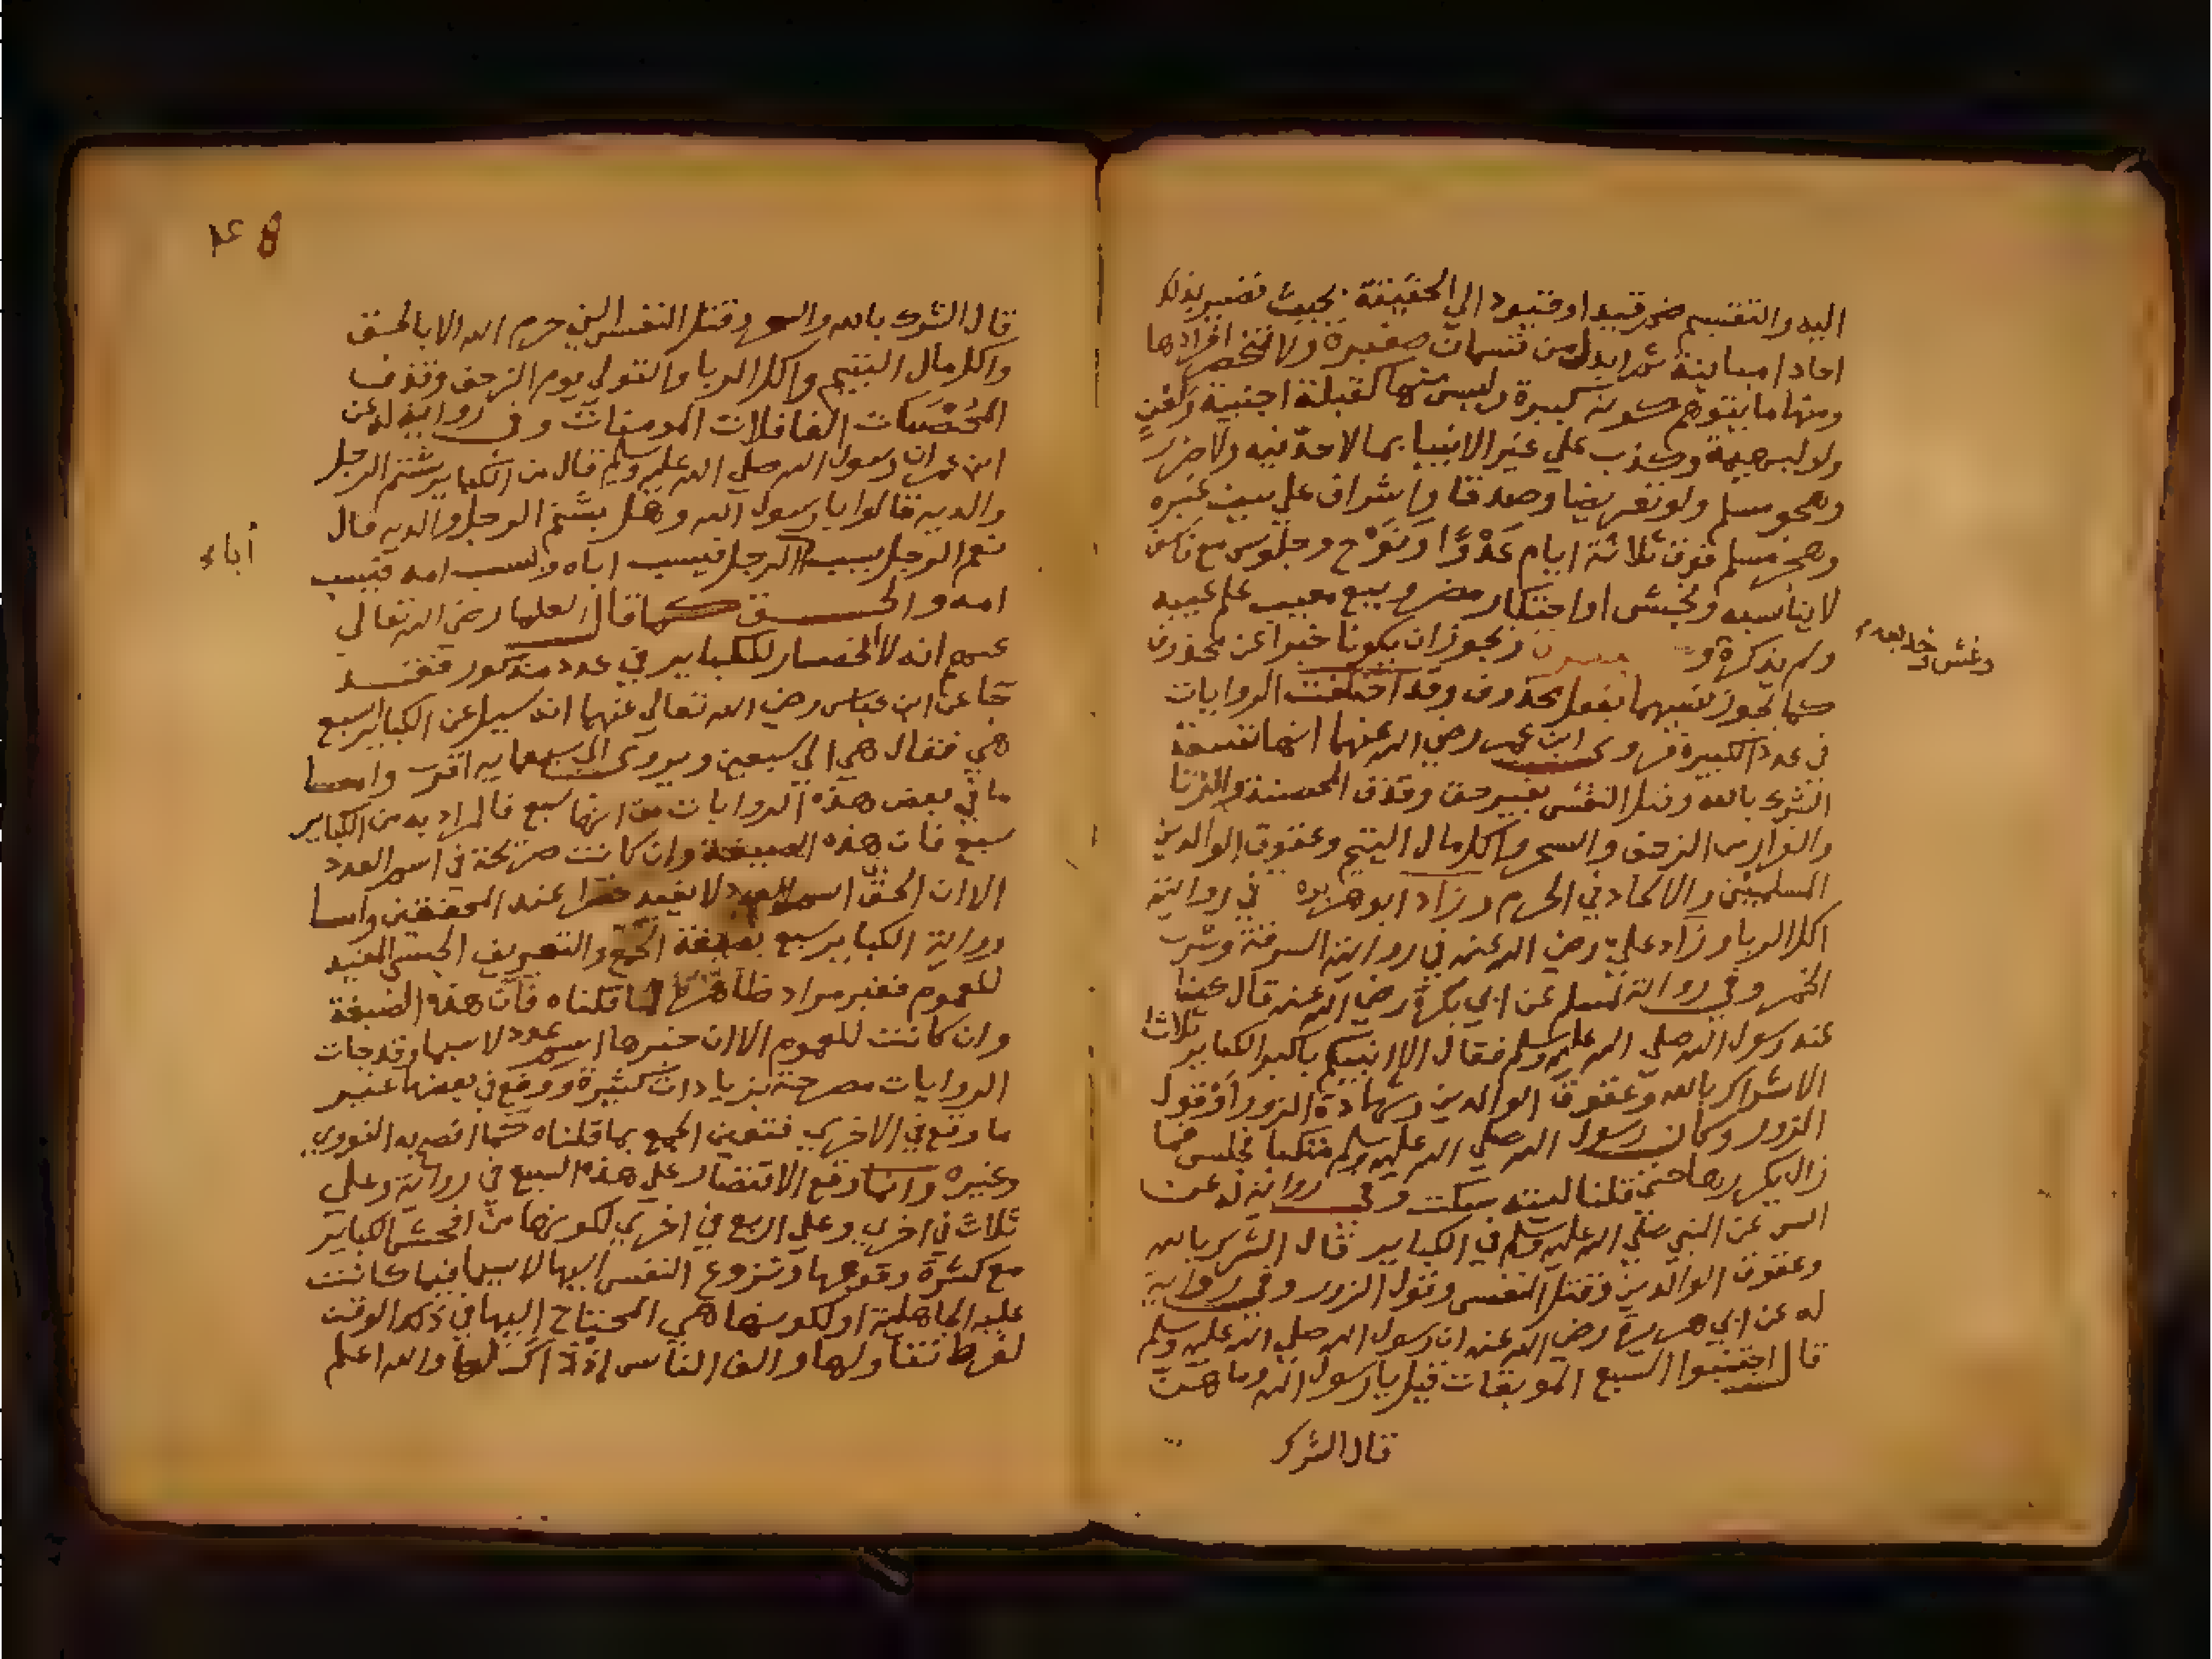 اليه والتقسيم ضم قيد او قيود الي الحقيقة بحيث تصير بذلك
احادا مباينة ثم ابدل من قسمان صغيرة ولا تنحصر افرادها
ومنها ما يتوهم كونه كبيرة وليس منها كقبلة اجنبية ولعن
ولو لبهيمة وكذب علي غير الانبيا بما لا حد فيه ولا ضرر
وهجو مسلم ولو تعريضا وصدقا واشراف علي بيت غيره
وهجر مسلم فوق ثلاثة ايام عدوا ونوح وجلوس مع فاسق
لا يناسبه ونجش او احتكار مضر وبيع معيب علم عيبه
ولم يذكره و ويجوز ان يكونا خبرا عن محذوف
وغش وخديعة
كما يجوز نصبهما بفعل محذوف وقد اختلفت الروايات
في عدد الكبيرة فروي ابن عمر رضي الله عنهما انها تسعة
الشرك بالله وقتل النفس بغير حق وقذف المحصنة والزنا
والفرار من الزحف والسحر واكل مال اليتيم وعقوق الوالدين
المسلمين والالحاد في الحرم وزاد ابو هريرة في رواية
اكل الربا وزاد علي رضي الله عنه في رواية السرقة وشرب
الخمر وفي رواية لمسلم عن ابي بكرة رضي الله عنه قال كنا
عند رسول الله صلي الله عليه وسلم فقال الا انبيكم باكبر الكباير ثلاثا
الاشراك بالله وعقوق الوالدين وشهادة الزور او قول
الزور وكان رسول الله صلي الله عليه وسلم متكيا فجلس فما
زال يكررها حتي قلنا ليته سكت وفي رواية له عن
انس عن النبي صلي الله عليه وسلم في الكباير قال الشرك بالله
وعقوق الوالدين وقتل النفس وقول الزور وفي رواية
له عن ابي هريرة رضي الله عنه ان رسول الله صلي الله عليه وسلم
قال اجتنبوا السبع الموبقات قيل يا رسول الله وما هن
قال الشرك
قال الشرك بالله والسحر وقتل النفس التي حرم الله الا بالحق
واكل مال اليتيم واكل الربا والتولي يوم الزحف وقذف
المحصنات الغافلات المومنات وفي رواية له عن
ابن عمر ان رسول الله صلي الله عليه وسلم قال من الكباير شتم الرجل
والديه قالوا يا رسول الله وهل يشتم الرجل والديه قال
نعم الرجل يسب الرجل فيسب اباه ويسب امه فيسب
أباء
امه والحق كما قال العلما رضي الله تعالي
عنهم انه لا انحصار للكباير في عدد مذكور فقد
جا عن ابن عباس رضي الله تعالي عنهما انه سيل عن الكباير اسبع
هي فقال هي الي سبعين ويروي الي سبعماية اقرب واما
ما في بعض هذه الروايات من انها سبع فالمراد به من الكباير
سبع فان هذه الصيغة وان كانت صريحة في اسم العدد
الا ان الحق اسم العدد لا يفيد حصرا عند المحققين واما
رواية الكباير سبع بصيغة الجمع والتعريف الجنسي المفيد
للعموم فغير مراد ظاهرها لما قلناه فان هذه الصيغة
وان كانت للعموم الا ان خبرها اسم عدد لا سيما وقد جات
الروايات مصرحة بزيادات كثيرة ووقع في بعضها غير
ما وقع في الاخري فتعين الجمع بما قلناه كما افصح به النووي
وغيره وانما وقع الاقتصار علي هذه السبع في رواية وعلي
ثلاث في اخري وعلي اربع في اخري لكونها من افحش الكباير
مع كثرة وقوعها ونزوع النفس اليها لا سيما فيما كانت
عليه الجاهلية او لكونها هي المحتاج اليها في ذلك الوقت
لفرط تناولها والف الناس اذ ذاك لها والله اعلم